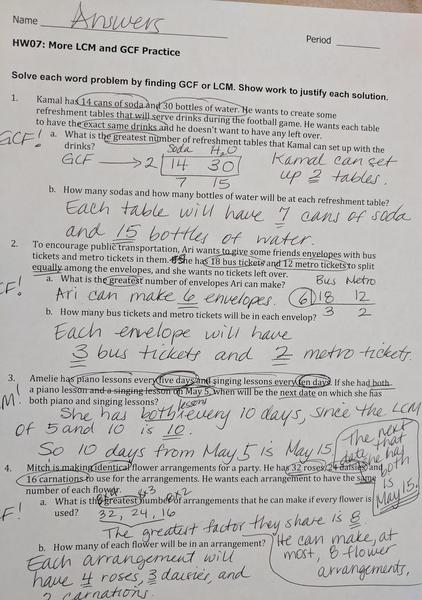 Name Answers
Period
HW07: More LCM and GCF Practice
Solve each word problem by finding GCF or LCM. Show work to justify each solution.
1. Kamal has 14 cans of soda and 30 bottles of water. He wants to create some
refreshment tables that will serve drinks during the football game. He wants each table
to have the exact same drinks and he doesn't want to have any left over.
GCF!
a. What is the greatest number of refreshment tables that Kamal can set up with the
drinks?
Soda H2O
GCF → 2 14 30
7 15
Kamal can set
up 2 tables.
b. How many sodas and how many bottles of water will be at each refreshment table?
Each table will have 7 cans of soda
and 15 bottles of water.
2. To encourage public transportation, Ari wants to give some friends envelopes with bus
tickets and metro tickets in them. She has 18 bus tickets and 12 metro tickets to split
equally among the envelopes, and she wants no tickets left over.
CF!
a. What is the greatest number of envelopes Ari can make?
Bus Metro
Ari can make 6 envelopes. 6 18 12
3 2
b. How many bus tickets and metro tickets will be in each envelop?
Each envelope will have
3 bus tickets and 2 metro tickets.
3. Amelie has piano lessons every five days and singing lessons every ten days. If she had both
a piano lesson and a singing lesson on May 5, when will be the next date on which she has
both piano and singing lessons?
M!
She has both lessons every 10 days, since the LCM
of 5 and 10 is 10.
So 10 days from May 5 is May 15.
The next
date that
she has
both
is
May 15.
4. Mitch is making identical flower arrangements for a party. He has 32 roses, 24 daisies, and
16 carnations to use for the arrangements. He wants each arrangement to have the same
number of each flower.
F!
a. What is the greatest number of arrangements that he can make if every flower is
used?
8x4 8x3 8x2
32, 24, 16
The greatest factor they share is 8
He can make, at
most, 8 flower
arrangements.
b. How many of each flower will be in an arrangement?
Each arrangement will
have 4 roses, 3 daisies, and
2 carnations.